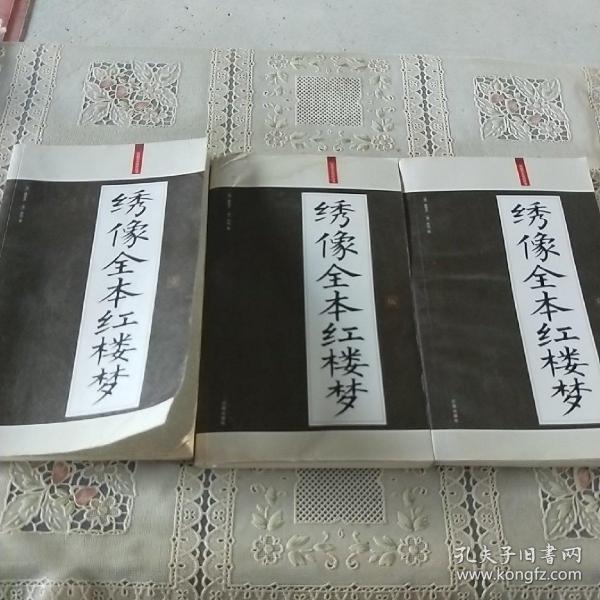 绣像全本红楼梦
绣像全本红楼梦
绣像全本红楼梦
孔夫子旧书网
www.kongfz.com